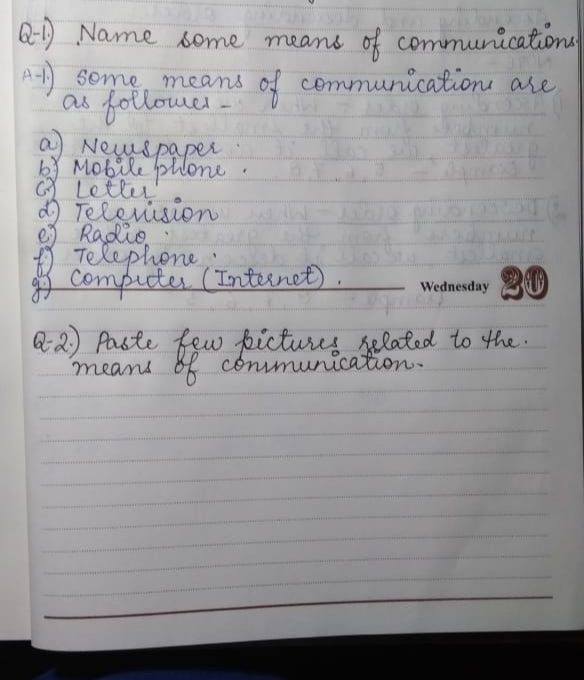 Q-1) Name some means of communications.
A-1) Some means of communications are
as follower -
a) Newspaper.
b) Mobile phone.
c) Letter
d) Television
e) Radio.
f) Telephone.
g) Computer (Internet).
Wednesday 20
Q-2.) Paste few pictures related to the.
means of communication.